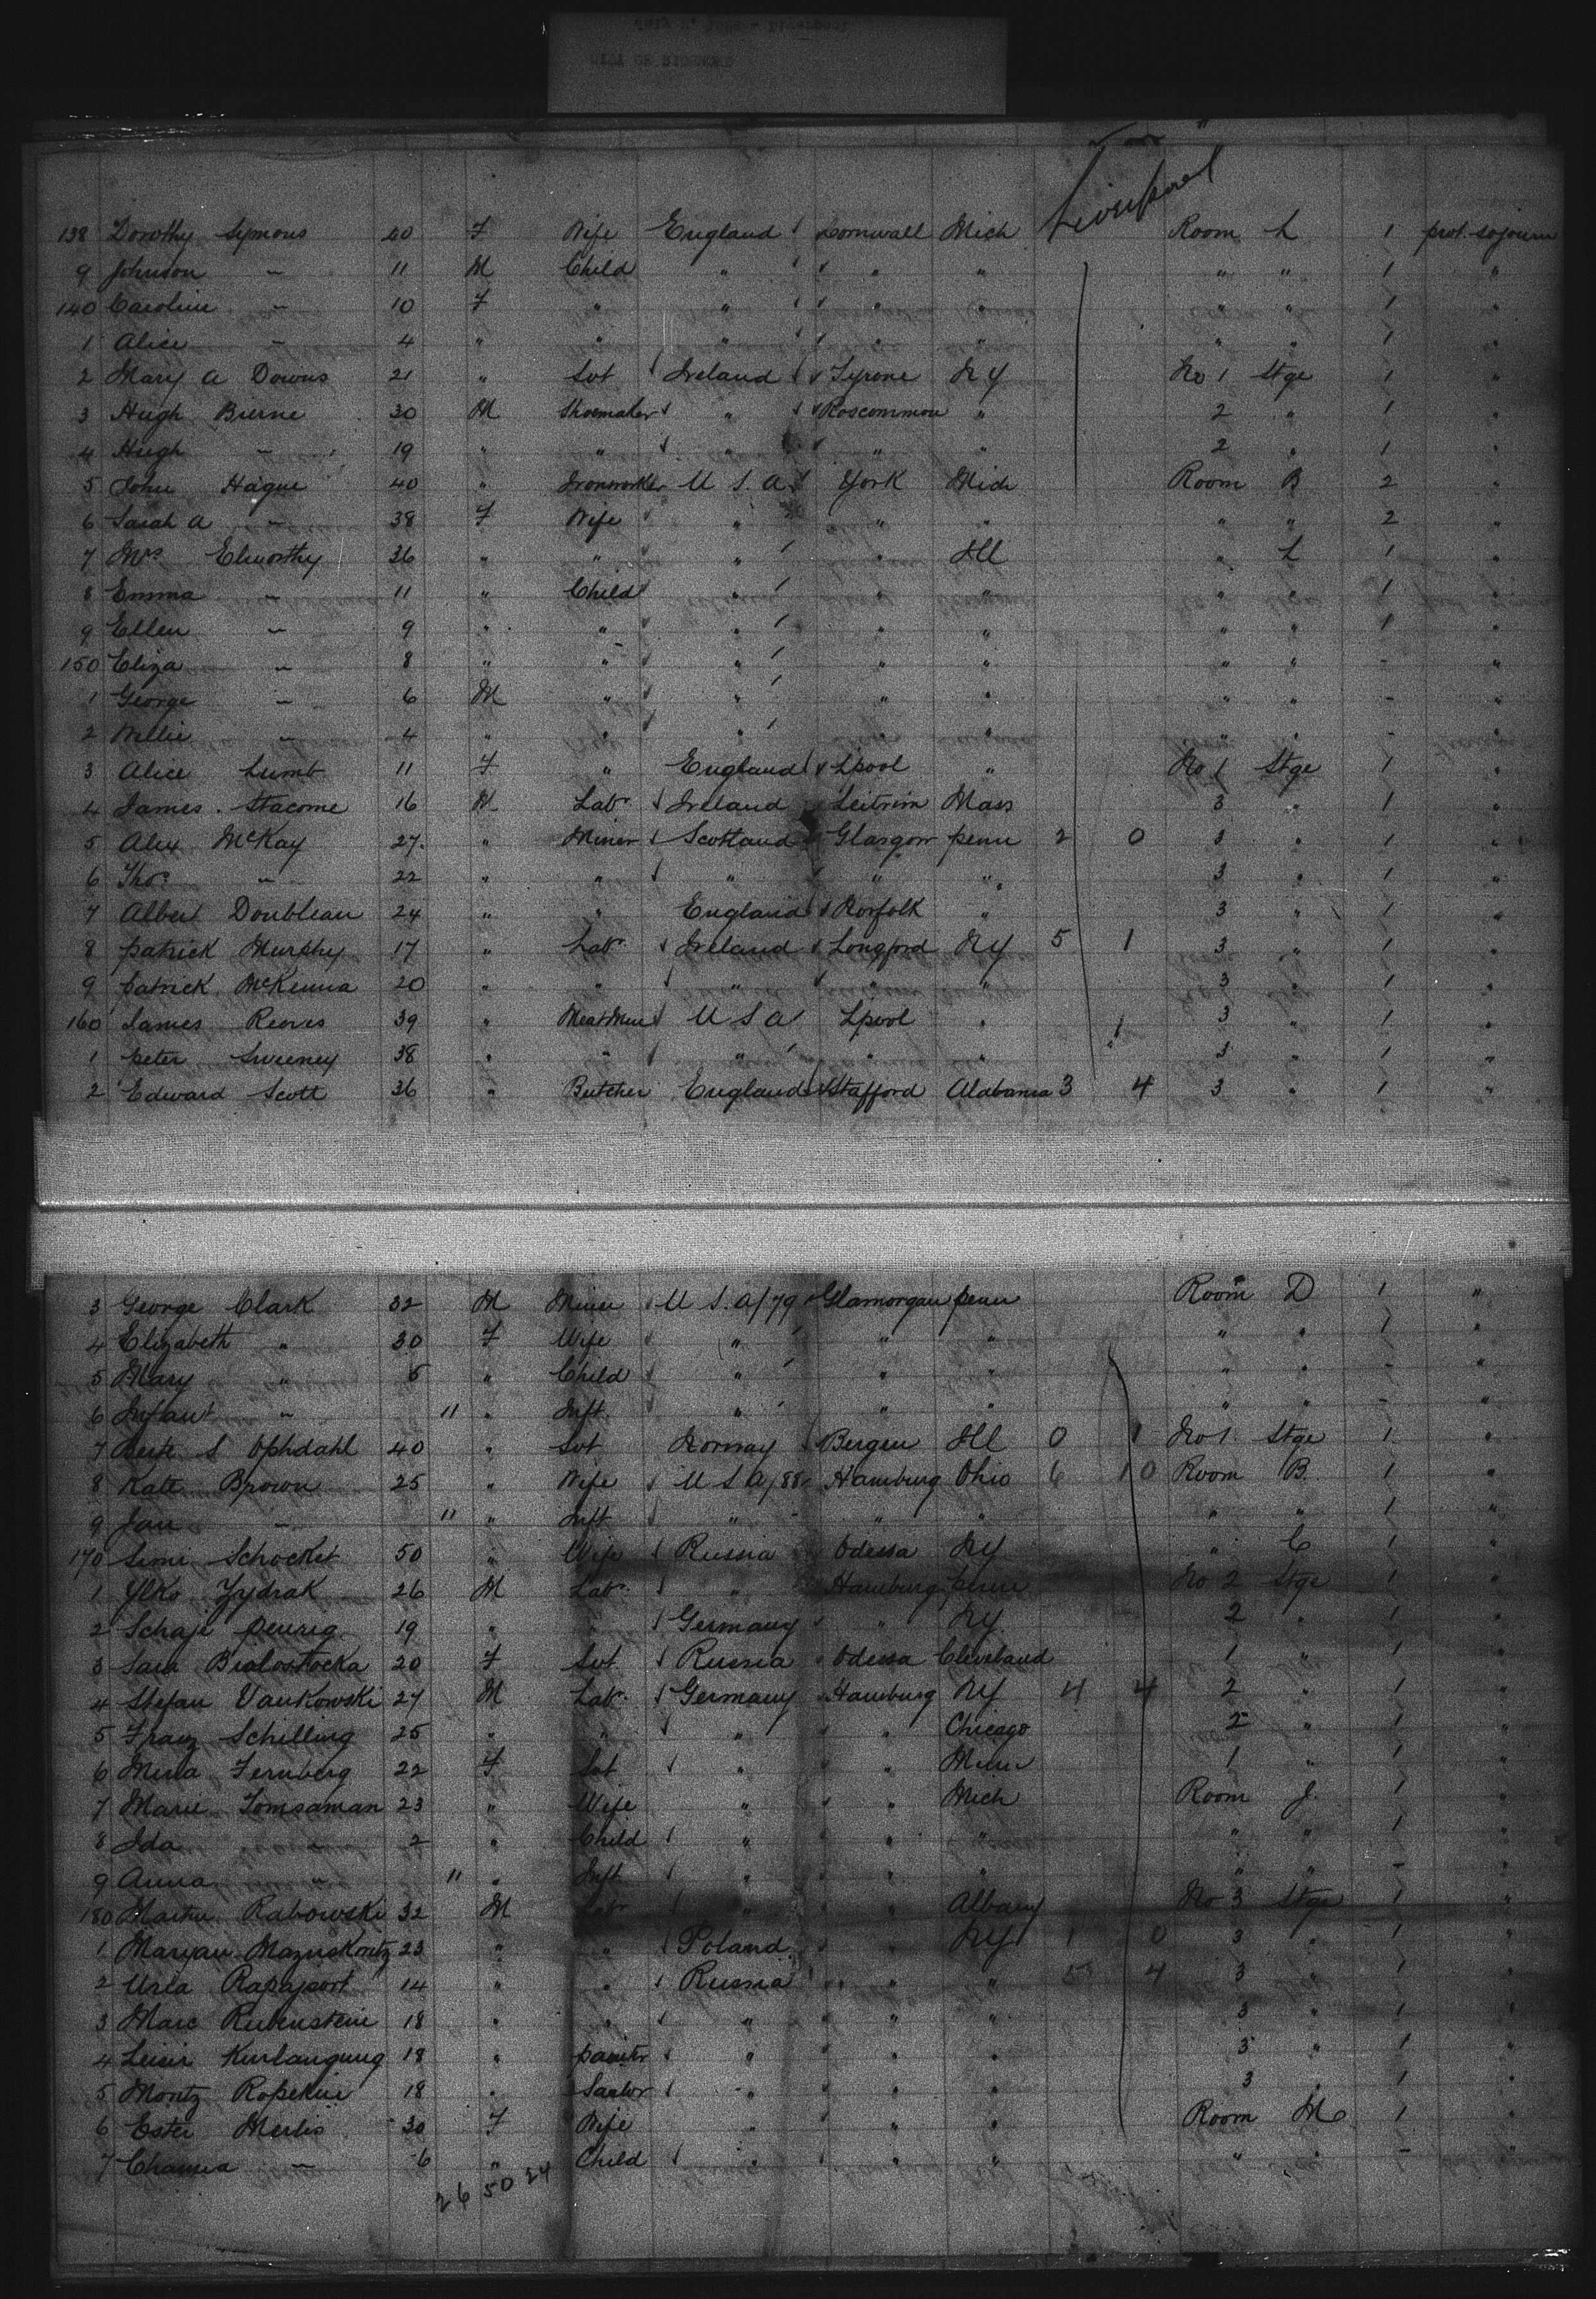 Liverpool
138 Dorothy Symons 40 F Wife England Cornwall Mich Room L 1 prot. sojourn
9 Johnson " 11 M Child " " " " " 1 "
140 Caroline " 10 F " " " " " " 1 "
1 Alice " 4 " " " " " " " 1 "
2 Mary A Downs 21 " Svt Ireland Tyrone NY No 1 Stge 1 "
3 Hugh Bierne 30 M Shoemaker " Roscommon " 2 " 1 "
4 Hugh " 19 " " " " " 2 " 1 "
5 John Hague 40 " Ironworker U S. A York Mich Room B 2 "
6 Sarah A " 38 F Wife " " " " " 2 "
7 Mrs Elworthy 36 " " " " Ill " L 1 "
8 Emma " 11 " Child " " " " " 1 "
9 Ellen " 9 " " " " " " " 1 "
150 Eliza " 8 " " " " " " " - "
1 George " 6 M " " " " " " - "
2 Willie " 4 " " " " " " " - "
3 Alice Lumb 11 F " England Lpool " No 1 Stge 1 "
4 James Stacome 16 M Labr Ireland Leitrim Mass 3 " 1 "
5 Alex McKay 27 " Miner Scotland Glasgow penn 2 0 3 " 1 "
6 Thos " 22 " " " " " 3 " 1 "
7 Albert Doubleau 24 " " England Norfolk " 3 " 1 "
8 patrick Murphy 17 " Labr Ireland Longford NY 5 1 3 " 1 "
9 patrick McKenna 20 " " " " " 3 " 1 "
160 James Reeves 39 " U S A Lpool " 1 3 " 1 "
1 peter Sweeney 38 " " " " " " 3 " 1 "
2 Edward Scott 36 " Butcher England Stafford Alabama 3 4 3 " 1 "
3 George Clark 32 M Miner U S. A/79 Glamorgan penn Room D 1 "
4 Elizabeth " 30 F Wife " " " " " 1 "
5 Mary " 5 " Child " " " " " - "
6 Infant " 11 " Inft " " " " " - "
7 Berte S Ophdahl 40 " Svt Norway Bergen Ill 0 1 No 1. Stge 1 "
8 Kate Brown 25 " Wife U S A/88 Hamburg Ohio 6 10 Room B. 1 "
9 Jan " 11 " Inft " " " " " 1 "
170 Simi Schocket 50 " Wife Russia Odessa NY " C 1 "
1 Ylko Zydrak 26 M Labr " Hamburg penn No 2 Stge 1 "
2 Schaje peurig 19 " " Germany " NY 2 " 1 "
3 Sara Bialostocka 20 F Svt Russia Odessa Cleveland 1 " 1 "
4 Stefan Vankowski 27 M Labr Germany Hamburg NY 4 4 2 " 1 "
5 Franz Schilling 25 " " " " Chicago 2 " 1 "
6 Mina Fernberg 22 F Svt " " Minn 1 " 1 "
7 Marie Tomsaman 23 " Wife " " Mich Room J. 1 "
8 Ida " 2 " Child " " " " " 1 "
9 Anna " 11 " Inft " " " " " - "
180 Martin Rabowski 32 M Labr " " Albany No 3 Stge 1 "
1 Maryan Maznskontz 23 " " Poland " NY 1 0 3 " 1 "
2 Uria Rapaport 14 " " Russia " " 5 4 3 " 1 "
3 Marc Rubenstein 18 " " " " " 3 " 1 "
4 Leisir Kurlangung 18 " painter " " " 3 " 1 "
5 Moritz Ropekin 18 " " " " 3 " 1 "
6 Ester Merlis 30 F Wife " " " Room M 1 "
7 Chamia " 6 " Child " " " " " - "
26 50 24